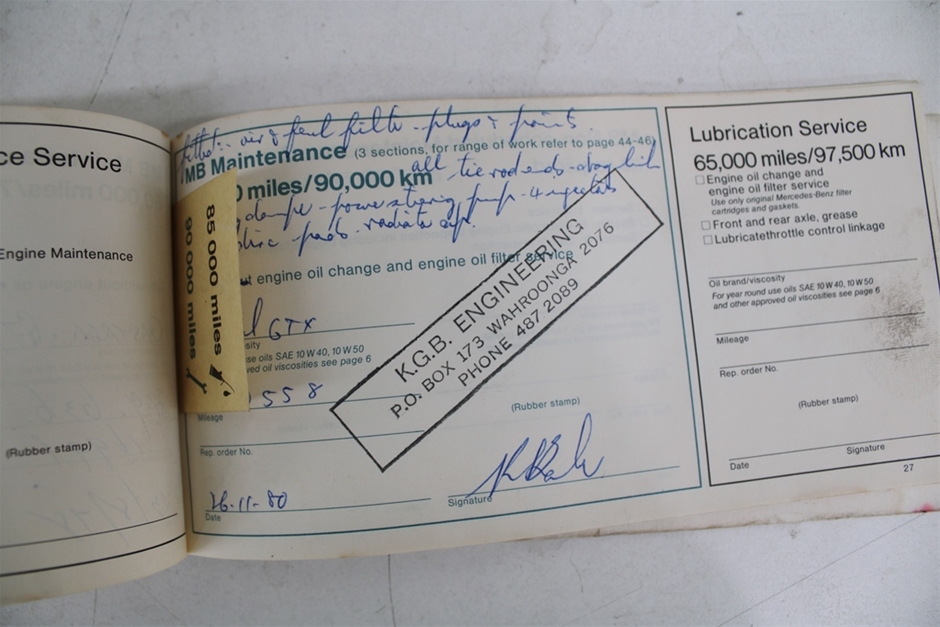 ce Service
Engine Maintenance
(Rubber stamp)
air & fuel filter - plugs & points.
MB Maintenance (3 sections, for range of work refer to page 44-46)
all tie rod ends - drag link
0 miles/90,000 km
power steering pump - 4 injectors
radiator cap.
engine oil change and engine oil filter service
85 000 miles
90 000 miles
GTX
sity
se oils SAE 10 W 40, 10 W 50
ved oil viscosities see page 6
558
Mileage
Rep. order No.
K.G.B. ENGINEERING
P.O. BOX 173 WAHROONGA 2076
PHONE 487 2089
(Rubber stamp)
26-11-80
Date
Signature
Lubrication Service
65,000 miles/97,500 km
Engine oil change and
engine oil filter service
Use only original Mercedes-Benz filter
cartridges and gaskets.
Front and rear axle, grease
Lubricatethrottle control linkage
Oil brand/viscosity
For year round use oils SAE 10 W 40, 10 W 50
and other approved oil viscosities see page 6
Mileage
Rep. order No.
(Rubber stamp)
Date
Signature
27